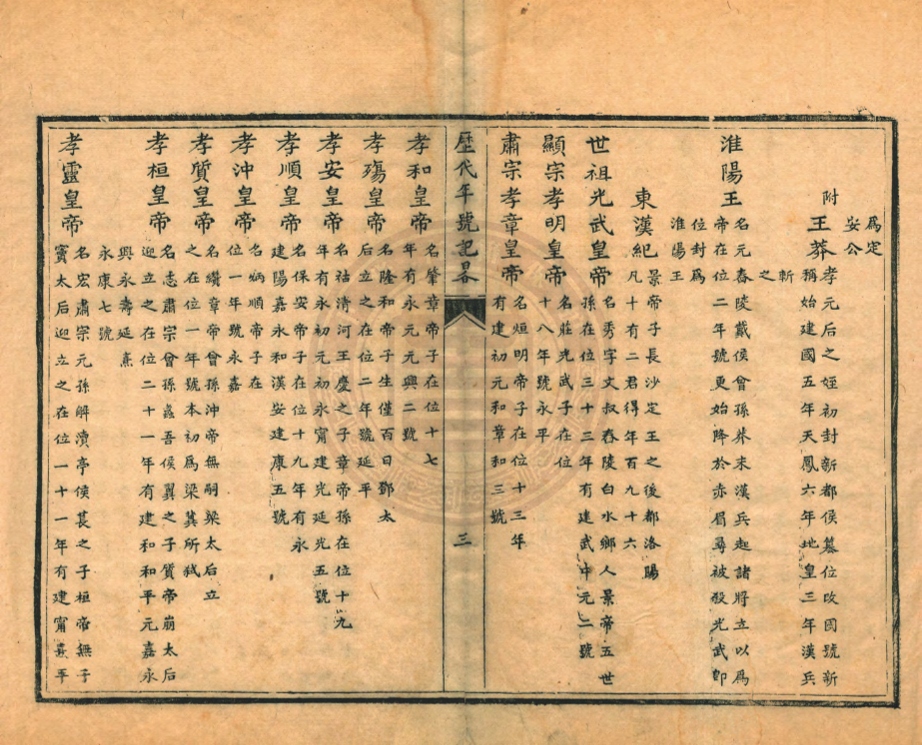 爲定
安公
附
王莽孝元后之姪初封新都侯篡位改國號新
稱始建國五年天鳳六年地皇三年漢兵
斬
之
淮陽王名元舂陵戴侯曾孫莽末漢兵起諸將立以爲
帝在位二年號更始降於赤眉尋被殺光武即
位封爲
淮陽王
東漢紀景帝子長沙定王之後都洛陽
凡十有二君得年百九十六
世祖光武皇帝名秀字文叔舂陵白水鄉人景帝五世
孫在位三十三年有建武中元二號
顯宗孝明皇帝名莊光武子在位
十八年號永平
肅宗孝章皇帝名烜明帝子在位十三年
有建初元和章和三號
歷代年號記畧
三
孝和皇帝名肇章帝子在位十七
年有永元元興二號
孝殤皇帝名隆和帝子生僅百日鄧太
后立之在位二年號延平
孝安皇帝名祜清河王慶之子章帝孫在位十九
年有永初元初永甯建光延光五號
孝順皇帝名保安帝子在位十九年有永
建陽嘉永和漢安建康五號
孝沖皇帝名炳順帝子在
位一年號永嘉
孝質皇帝名纘章帝曾孫沖帝無嗣梁太后立
之在位一年號本初爲梁冀所弒
孝桓皇帝名志肅宗曾孫蠡吾侯翼之子質帝崩太后
迎立之在位二十一年有建和和平元嘉永
興永壽延熹
永康七號
孝靈皇帝名宏肅宗元孫解瀆亭侯萇之子桓帝無子
竇太后迎立之在位一十一年有建甯熹平